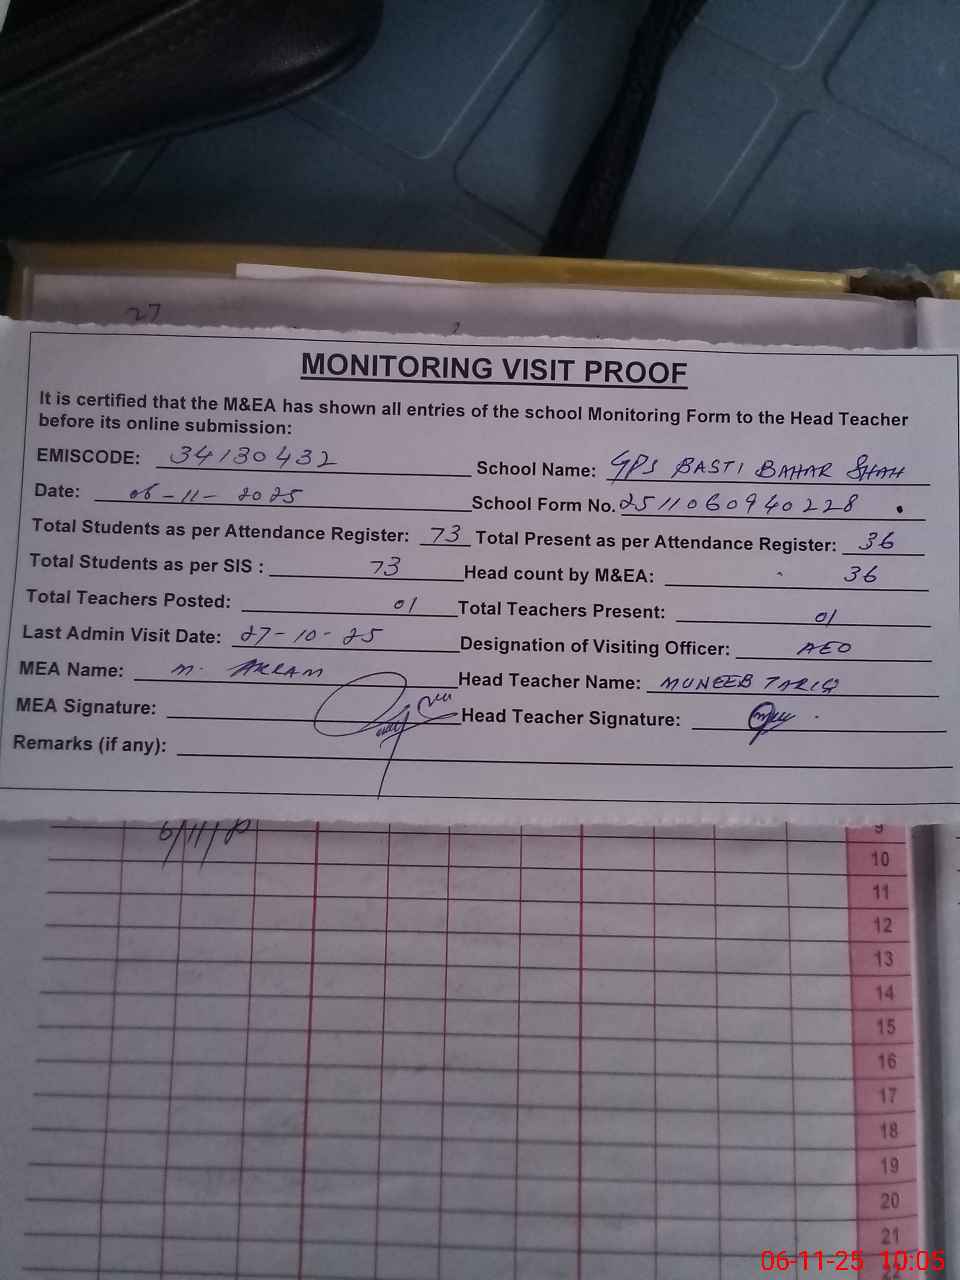 27
MONITORING VISIT PROOF
It is certified that the M&EA has shown all entries of the school Monitoring Form to the Head Teacher
before its online submission:
EMISCODE: 34130432 School Name: GPS BASTI BAHAR SHAH
Date: 06-11-2025 School Form No. 2511060940228
Total Students as per Attendance Register: 73 Total Present as per Attendance Register: 36
Total Students as per SIS : 73 Head count by M&EA: 36
Total Teachers Posted: 01 Total Teachers Present: 01
Last Admin Visit Date: 27-10-25 Designation of Visiting Officer: AEO
MEA Name: M. AKRAM Head Teacher Name: MUNEEB TARIQ
MEA Signature: Head Teacher Signature:
Remarks (if any):
6/11/ 9
10
11
12
13
14
15
16
17
18
19
20
21
06-11-25 10:05